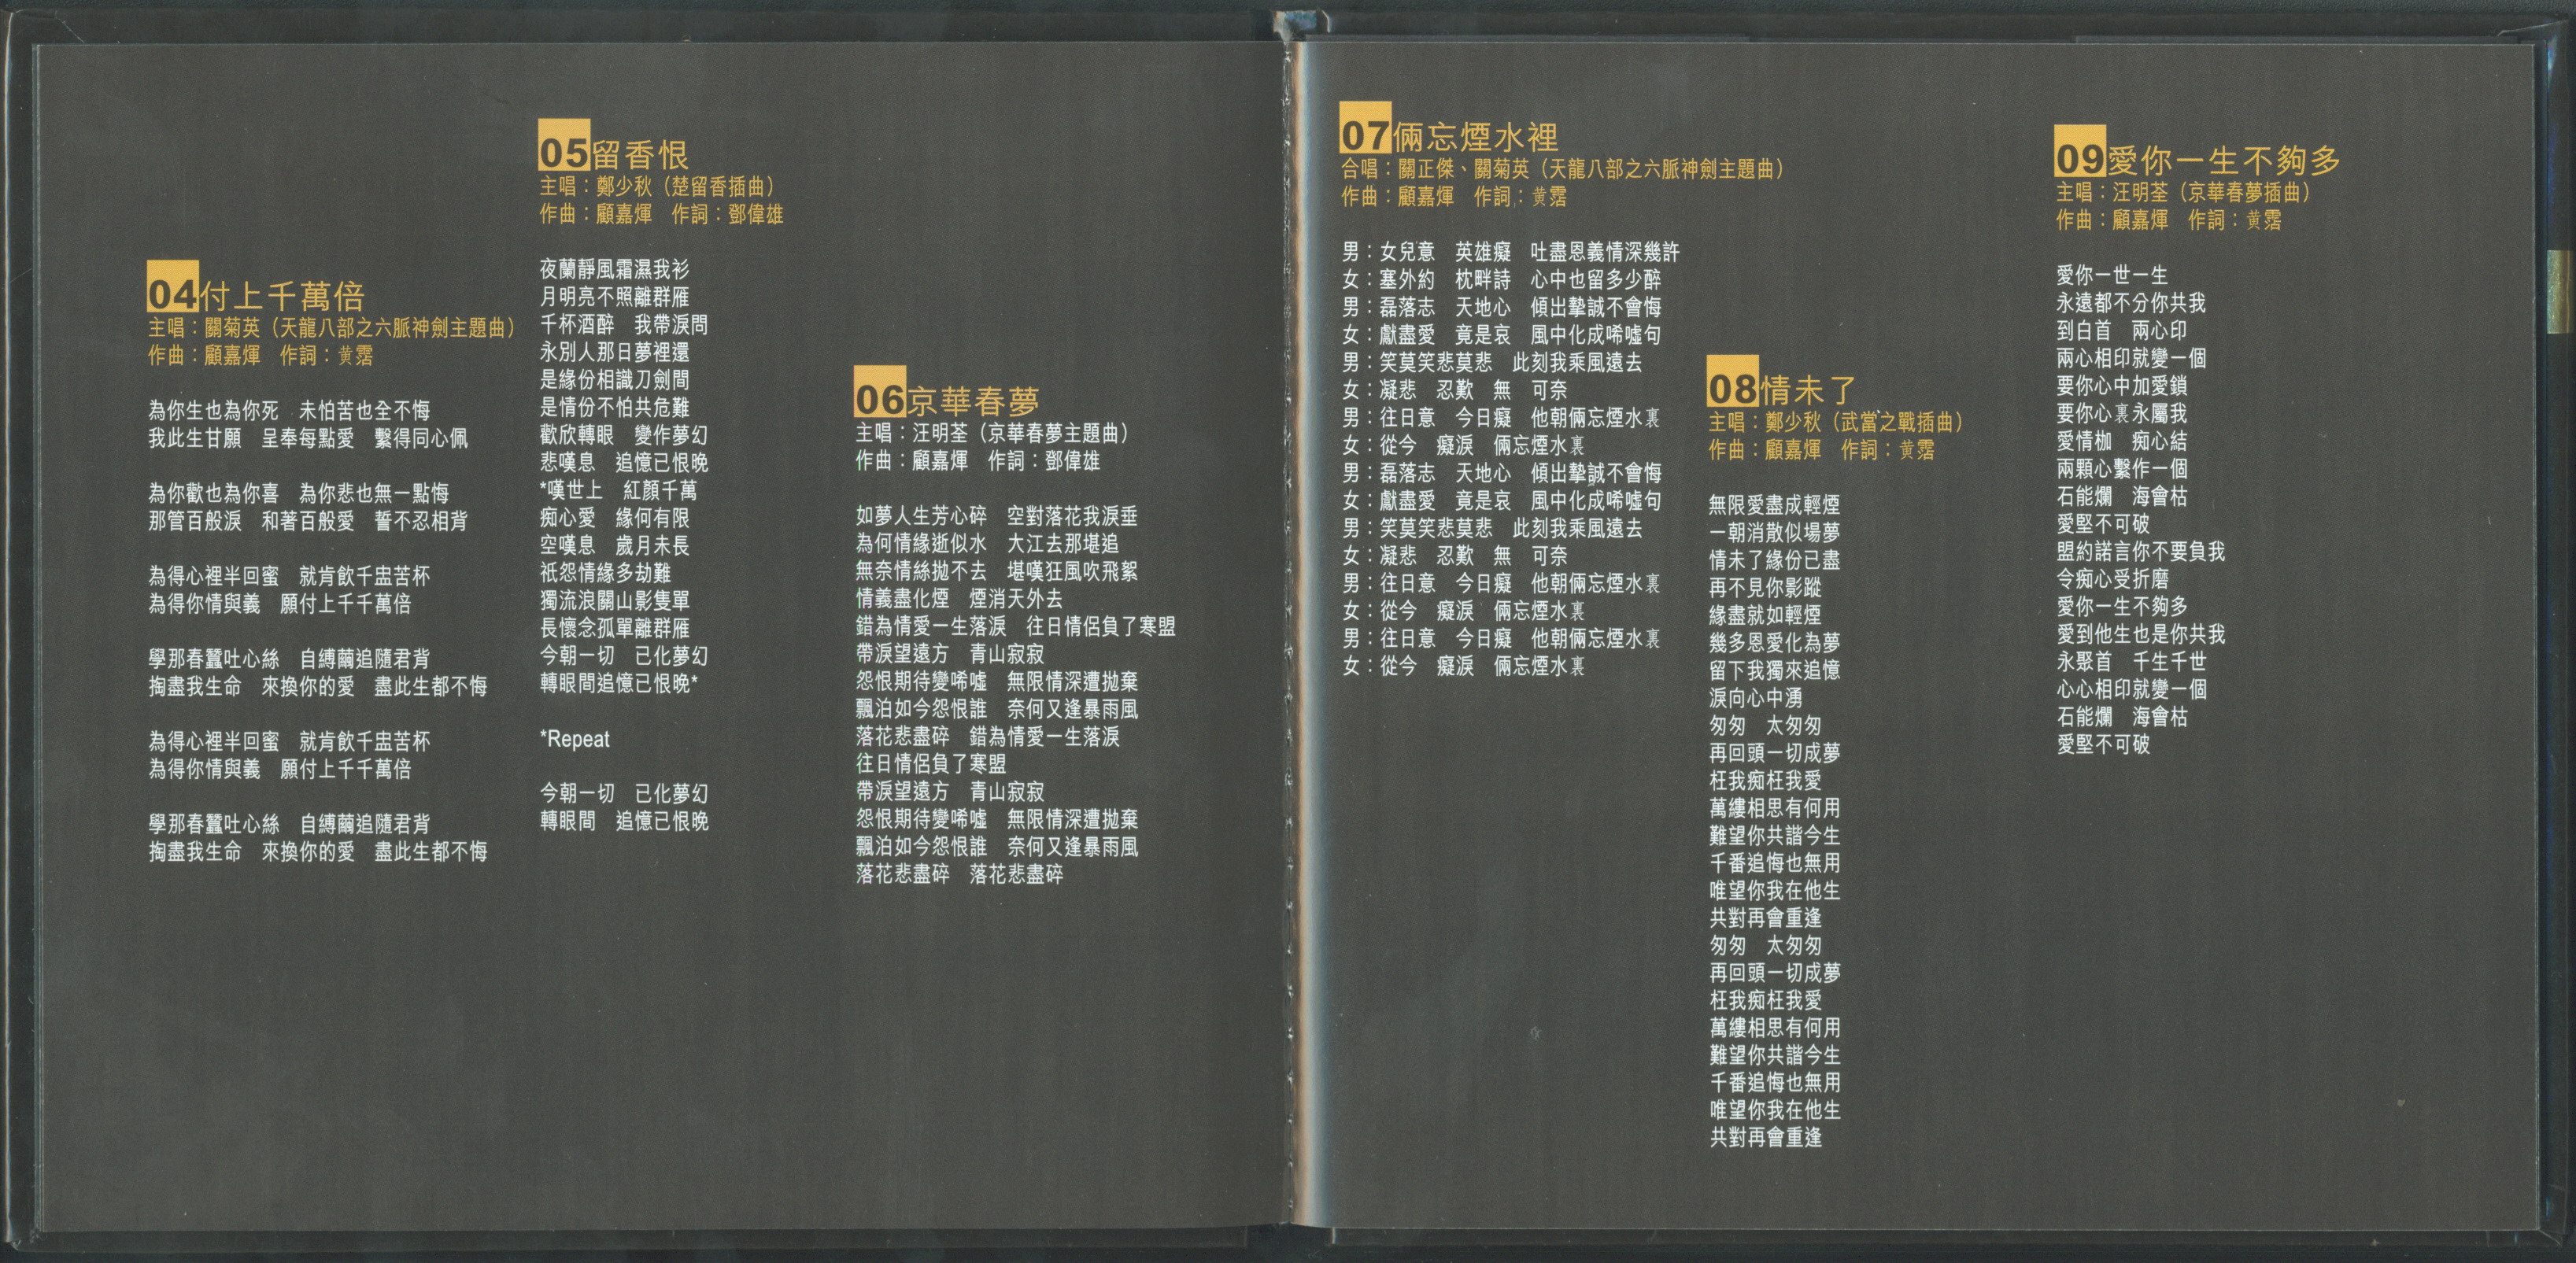 04付上千萬倍
主唱：關菊英（天龍八部之六脈神劍主題曲）
作曲：顧嘉煇　作詞：黄霑
為你生也為你死　未怕苦也全不悔
我此生甘願　呈奉每點愛　繫得同心佩
為你歡也為你喜　為你悲也無一點悔
那管百般淚　和著百般愛　誓不忍相背
為得心裡半回蜜　就肯飲千盅苦杯
為得你情與義　願付上千千萬倍
學那春蠶吐心絲　自縛繭追隨君背
掏盡我生命　來換你的愛　盡此生都不悔
為得心裡半回蜜　就肯飲千盅苦杯
為得你情與義　願付上千千萬倍
學那春蠶吐心絲　自縛繭追隨君背
掏盡我生命　來換你的愛　盡此生都不悔
05留香恨
主唱：鄭少秋（楚留香插曲）
作曲：顧嘉煇　作詞：鄧偉雄
夜蘭靜風霜濕我衫
月明亮不照離群雁
千杯酒醉　我帶淚問
永別人那日夢裡還
是緣份相識刀劍間
是情份不怕共危難
歡欣轉眼　變作夢幻
悲嘆息　追憶已恨晚
*嘆世上　紅顏千萬
痴心愛　緣何有限
空嘆息　歲月未長
祇怨情緣多劫難
獨流浪關山影隻單
長懷念孤單離群雁
今朝一切　已化夢幻
轉眼間追憶已恨晚*
*Repeat
今朝一切　已化夢幻
轉眼間　追憶已恨晚
06京華春夢
主唱：汪明荃（京華春夢主題曲）
作曲：顧嘉煇　作詞：鄧偉雄
如夢人生芳心碎　空對落花我淚垂
為何情緣逝似水　大江去那堪追
無奈情絲拋不去　堪嘆狂風吹飛絮
情義盡化煙　煙消天外去
錯為情愛一生落淚　往日情侶負了寒盟
帶淚望遠方　青山寂寂
怨恨期待變唏噓　無限情深遭拋棄
飄泊如今怨恨誰　奈何又逢暴雨風
落花悲盡碎　錯為情愛一生落淚
往日情侶負了寒盟
帶淚望遠方　青山寂寂
怨恨期待變唏噓　無限情深遭拋棄
飄泊如今怨恨誰　奈何又逢暴雨風
落花悲盡碎　落花悲盡碎
07倆忘煙水裡
合唱：關正傑、關菊英（天龍八部之六脈神劍主題曲）
作曲：顧嘉煇　作詞：黄霑
男：女兒意　英雄癡　吐盡恩義情深幾許
女：塞外約　枕畔詩　心中也留多少醉
男：磊落志　天地心　傾出摯誠不會悔
女：獻盡愛　竟是哀　風中化成唏噓句
男：笑莫笑悲莫悲　此刻我乘風遠去
女：凝悲　忍歎　無　可奈
男：往日意　今日癡　他朝倆忘煙水裏
女：從今　癡淚　倆忘煙水裏
男：磊落志　天地心　傾出摯誠不會悔
女：獻盡愛　竟是哀　風中化成唏噓句
男：笑莫笑悲莫悲　此刻我乘風遠去
女：凝悲　忍歎　無　可奈
男：往日意　今日癡　他朝倆忘煙水裏
女：從今　癡淚　倆忘煙水裏
男：往日意　今日癡　他朝倆忘煙水裏
女：從今　癡淚　倆忘煙水裏
08情未了
主唱：鄭少秋（武當之戰插曲）
作曲：顧嘉煇　作詞：黄霑
無限愛盡成輕煙
一朝消散似場夢
情未了緣份已盡
再不見你影蹤
緣盡就如輕煙
幾多恩愛化為夢
留下我獨來追憶
淚向心中湧
匆匆　太匆匆
再回頭一切成夢
枉我痴枉我愛
萬縷相思有何用
難望你共諧今生
千番追悔也無用
唯望你我在他生
共對再會重逢
匆匆　太匆匆
再回頭一切成夢
枉我痴枉我愛
萬縷相思有何用
難望你共諧今生
千番追悔也無用
唯望你我在他生
共對再會重逢
09愛你一生不夠多
主唱：汪明荃（京華春夢插曲）
作曲：顧嘉煇　作詞：黄霑
愛你一世一生
永遠都不分你共我
到白首　兩心印
兩心相印就變一個
要你心中加愛鎖
要你心裏永屬我
愛情枷　痴心結
兩顆心繫作一個
石能爛　海會枯
愛堅不可破
盟約諾言你不要負我
令痴心受折磨
愛你一生不夠多
愛到他生也是你共我
永聚首　千生千世
心心相印就變一個
石能爛　海會枯
愛堅不可破